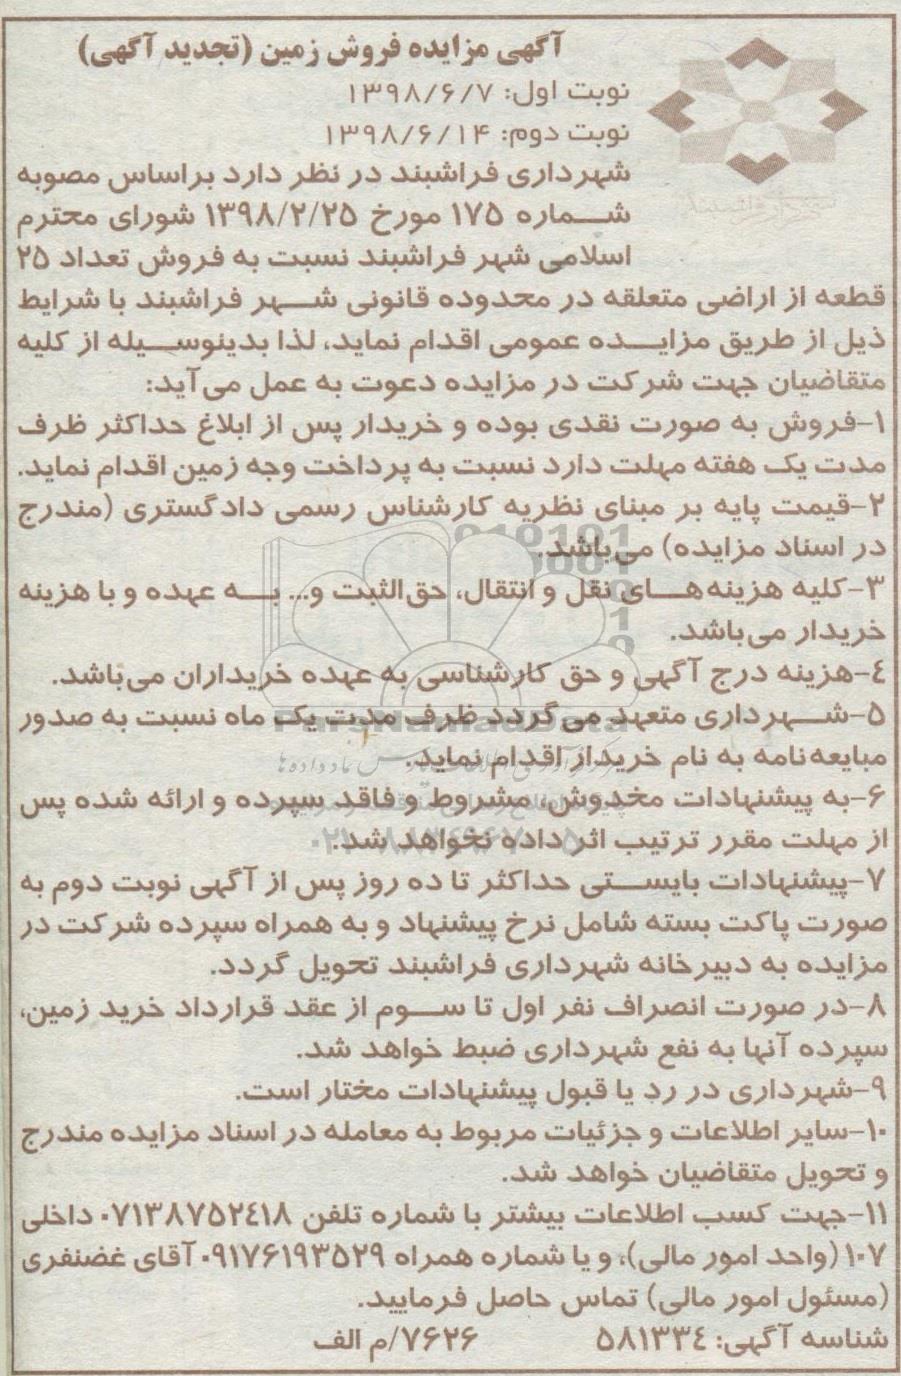 آگهی مزایده فروش زمین (تجدید آگهی)
نوبت اول: ۱۳۹۸/۶/۷
نوبت دوم: ۱۳۹۸/۶/۱۴
شهرداری فراشبند در نظر دارد براساس مصوبه
شماره ۱۷۵ مورخ ۱۳۹۸/۲/۲۵ شورای محترم
اسلامی شهر فراشبند نسبت به فروش تعداد ۲۵
قطعه از اراضی متعلقه در محدوده قانونی شهر فراشبند با شرایط
ذیل از طریق مزایده عمومی اقدام نماید، لذا بدینوسیله از کلیه
متقاضیان جهت شرکت در مزایده دعوت به عمل می‌آید:
۱-فروش به صورت نقدی بوده و خریدار پس از ابلاغ حداکثر ظرف
مدت یک هفته مهلت دارد نسبت به پرداخت وجه زمین اقدام نماید.
۲-قیمت پایه بر مبنای نظریه کارشناس رسمی دادگستری (مندرج
در اسناد مزایده) می‌باشد.
۳-کلیه هزینه‌های نقل و انتقال، حق‌الثبت و... به عهده و با هزینه
خریدار می‌باشد.
۴-هزینه درج آگهی و حق کارشناسی به عهده خریداران می‌باشد.
۵-شهرداری متعهد می‌گردد ظرف مدت یک ماه نسبت به صدور
ParsNamadData
مبایعه‌نامه به نام خریدار اقدام نماید.
۶-به پیشنهادات مخدوش، مشروط و فاقد سپرده و ارائه شده پس
از مهلت مقرر ترتیب اثر داده نخواهد شد.
۷-پیشنهادات بایستی حداکثر تا ده روز پس از آگهی نوبت دوم به
صورت پاکت بسته شامل نرخ پیشنهاد و به همراه سپرده شرکت در
مزایده به دبیرخانه شهرداری فراشبند تحویل گردد.
۸-در صورت انصراف نفر اول تا سوم از عقد قرارداد خرید زمین،
سپرده آنها به نفع شهرداری ضبط خواهد شد.
۹-شهرداری در رد یا قبول پیشنهادات مختار است.
۱۰-سایر اطلاعات و جزئیات مربوط به معامله در اسناد مزایده مندرج
و تحویل متقاضیان خواهد شد.
۱۱-جهت کسب اطلاعات بیشتر با شماره تلفن ۰۷۱۳۸۷۵۲۴۱۸ داخلی
۱۰۷ (واحد امور مالی)، و یا شماره همراه ۰۹۱۷۶۱۹۳۵۲۹ آقای غضنفری
(مسئول امور مالی) تماس حاصل فرمایید.
شناسه آگهی: ۵۸۱۳۳۴ ۷۶۲۶/م الف